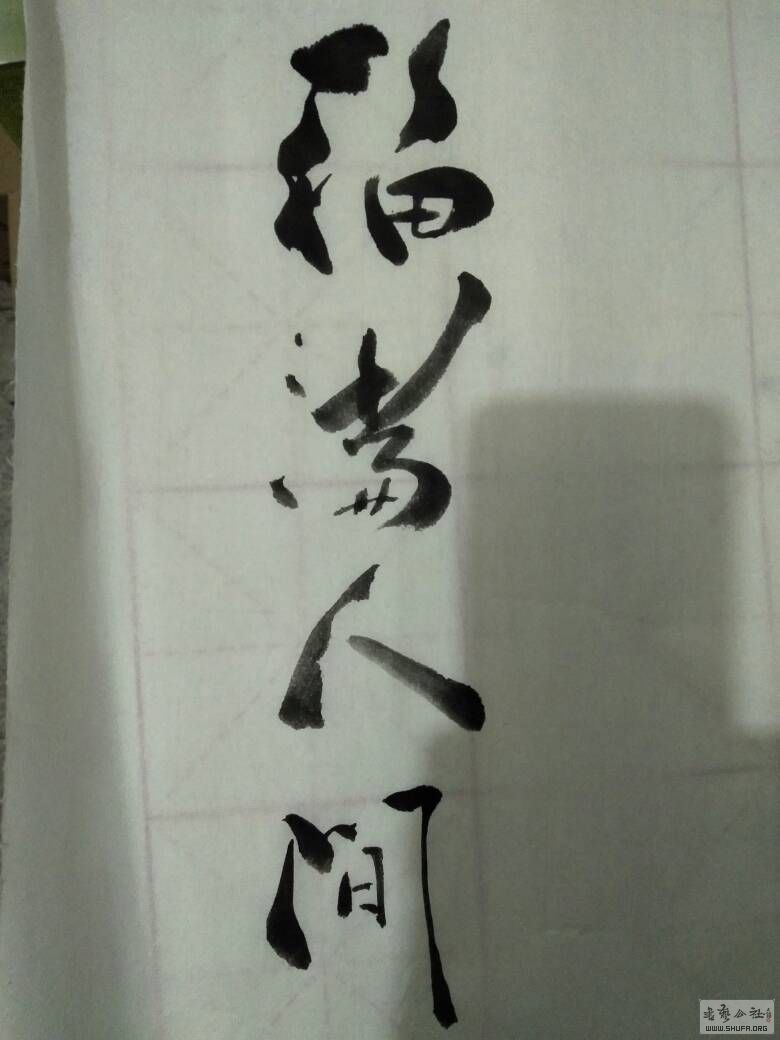 福满人间
书艺公社
WWW.SHUFA.ORG